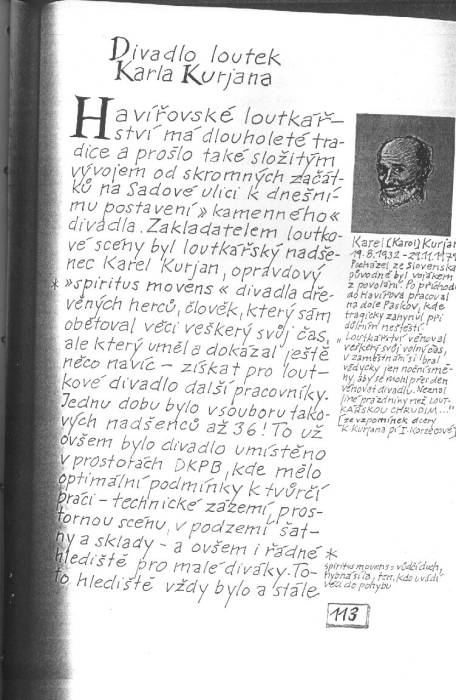 Divadlo loutek
Karla Kurjana
Havířovské loutkář-
ství má dlouholeté tra-
dice a prošlo také složitým
vývojem od skromných začát-
ků na Sadové ulici k dnešní-
mu postavení »kamenného«
divadla. Zakladatelem loutko-
vé scény byl loutkářský nadše-
nec Karel Kurjan, opravdový
* »spiritus movens« divadla dře-
věných herců, člověk, který sám
obětoval věci veškerý svůj čas,
ale který uměl a dokázal ještě
něco navíc – získat pro lout-
kové divadlo další pracovníky.
Jednu dobu bylo v souboru tako-
vých nadšenců až 36! To už
ovšem bylo divadlo umístěno
v prostorách DKPB, kde mělo
optimální podmínky k tvůrčí
práci – technické zázemí, pros-
tornou scénu, v podzemí šat-
ny a sklady – a ovšem i řádné
hlediště pro malé diváky. To-
to hlediště vždy bylo a stále
Karel (Karol) Kurjan
19.8.1932 –
Pocházel ze Slovenska,
původně byl vojákem
z povolání. Po příchodu
do Havířova pracoval
na dole Paskov, kde
tragicky zahynul při
důlním neštěstí.
„Loutkářství věnoval
veškerý svůj volný čas,
v zaměstnání si bral
vždycky jen noční smě-
ny, aby se mohl přes den
věnovat divadlu. Neznal
jiné prázdniny než LOUT-
KÁŘSKOU CHRUDIM..."
(ze vzpomínek dcery
K. Kurjana pí I. Korzecové)
*
spiritus movens = vůdčí duch,
hybná síla, tzn. kdo uvádí
věci do pohybu
113